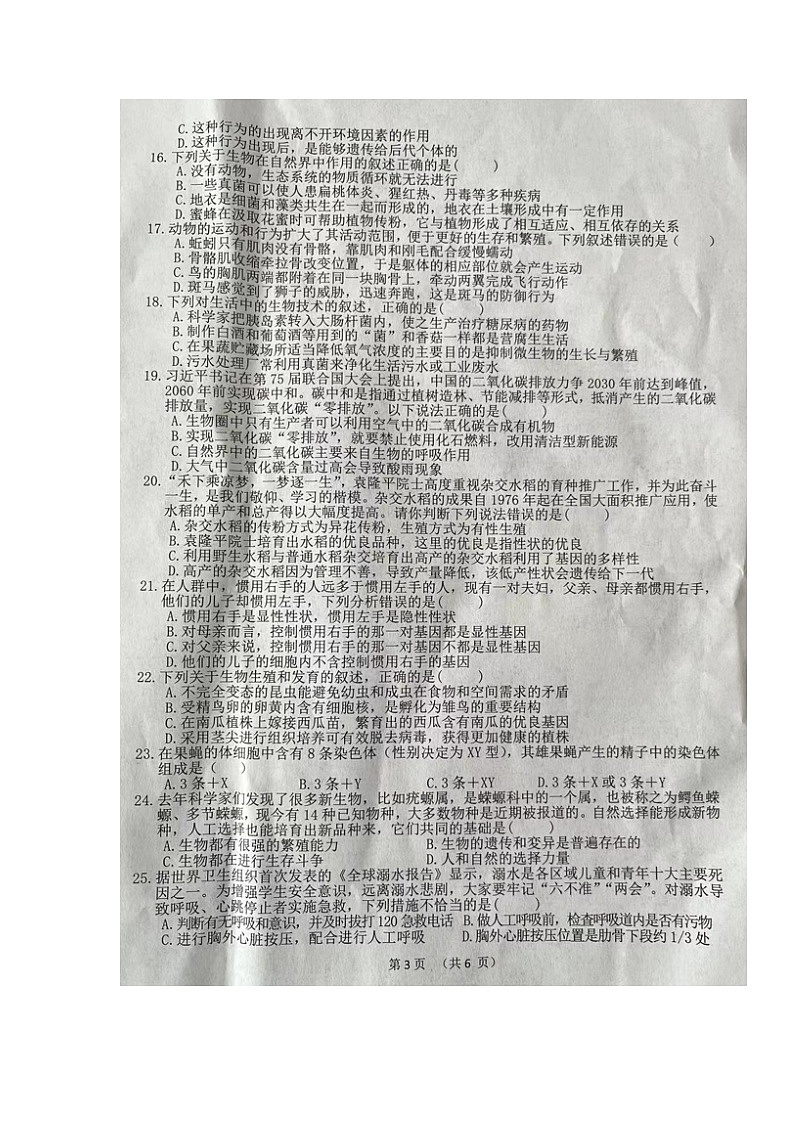 C.这种行为的出现离不开环境因素的作用
D.这种行为出现后，是能够遗传给后代个体的
16.下列关于生物在自然界中作用的叙述正确的是(　　)
A.没有动物，生态系统的物质循环就无法进行
B.一些真菌可以使人患扁桃体炎、猩红热、丹毒等多种疾病
C.地衣是细菌和藻类共生在一起而形成的，地衣在土壤形成中有一定作用
D.蜜蜂在汲取花蜜时可帮助植物传粉，它与植物形成了相互适应、相互依存的关系
17.动物的运动和行为扩大了其活动范围，便于更好的生存和繁殖。下列叙述错误的是(　　)
A.蚯蚓只有肌肉没有骨骼，靠肌肉和刚毛配合缓慢蠕动
B.骨骼肌收缩牵拉骨改变位置，于是躯体的相应部位就会产生运动
C.鸟的胸肌两端都附着在同一块胸骨上，牵动两翼完成飞行动作
D.斑马感觉到了狮子的威胁，迅速奔跑，这是斑马的防御行为
18.下列对生活中的生物技术的叙述，正确的是(　　)
A.科学家把胰岛素转入大肠杆菌内，使之生产治疗糖尿病的药物
B.制作白酒和葡萄酒等用到的“菌”和香菇一样都是营腐生生活
C.在果蔬贮藏场所适当降低氧气浓度的主要目的是抑制微生物的生长与繁殖
D.污水处理厂常利用真菌来净化生活污水或工业废水
19.习近平书记在第 75 届联合国大会上提出，中国的二氧化碳排放力争 2030 年前达到峰值，
2060 年前实现碳中和。碳中和是指通过植树造林、节能减排等形式，抵消产生的二氧化碳
排放量，实现二氧化碳“零排放”。以下说法正确的是(　　)
A.生物圈中只有生产者可以利用空气中的二氧化碳合成有机物
B.实现二氧化碳“零排放”，就要禁止使用化石燃料，改用清洁型新能源
C.自然界中的二氧化碳主要来自生物的呼吸作用
D.大气中二氧化碳含量过高会导致酸雨现象
20.“禾下乘凉梦，一梦逐一生”，袁隆平院士高度重视杂交水稻的育种推广工作，并为此奋斗
一生，是我们敬仰、学习的楷模。杂交水稻的成果自 1976 年起在全国大面积推广应用，使
水稻的单产和总产得以大幅度提高。请你判断下列说法错误的是(　　)
A.杂交水稻的传粉方式为异花传粉，生殖方式为有性生殖
B.袁隆平院士培育出水稻的优良品种，这里的优良是指性状的优良
C.利用野生水稻与普通水稻杂交培育出高产的杂交水稻利用了基因的多样性
D.高产的杂交水稻因为管理不善，导致产量降低，该低产性状会遗传给下一代
21.在人群中，惯用右手的人远多于惯用左手的人，现有一对夫妇，父亲、母亲都惯用右手，
他们的儿子却惯用左手，下列分析错误的是(　　)
A.惯用右手是显性性状，惯用左手是隐性性状
B.对母亲而言，控制惯用右手的那一对基因都是显性基因
C.对父亲来说，控制惯用右手的那一对基因不都是显性基因
D.他们的儿子的细胞内不含控制惯用右手的基因
22.下列关于生物生殖和发育的叙述，正确的是(　　)
A.不完全变态的昆虫能避免幼虫和成虫在食物和空间需求的矛盾
B.受精鸟卵的卵黄内含有细胞核，是孵化为雏鸟的重要结构
C.在南瓜植株上嫁接西瓜苗，繁育出的西瓜含有南瓜的优良基因
D.采用茎尖进行组织培养可有效脱去病毒，获得更加健康的植株
23.在果蝇的体细胞中含有 8 条染色体（性别决定为 XY 型），其雄果蝇产生的精子中的染色体
组成是（　　）
A.3 条＋X　　B.3 条＋Y　　C.3 条＋XY　　D.3 条＋X 或 3 条＋Y
24.去年科学家们发现了很多新生物，比如疣螈属，是蝾螈科中的一个属，也被称之为鳄鱼蝾
螈、多节蝾螈，现今有 14 种已知物种，大多数物种是近期被报道的。自然选择能形成新物
种，人工选择也能培育出新品种来，它们共同的基础是(　　)
A.生物都有很强的繁殖能力　　B.生物的遗传和变异是普遍存在的
C.生物都在进行生存斗争　　D.人和自然的选择力量
25.据世界卫生组织首次发表的《全球溺水报告》显示，溺水是各区域儿童和青年十大主要死
因之一。为增强学生安全意识，远离溺水悲剧，大家要牢记“六不准”“两会”。对溺水导
致呼吸、心跳停止者实施急救，下列措施不恰当的是(　　)
A.判断有无呼吸和意识，并及时拔打 120 急救电话　B.做人工呼吸前，检查呼吸道内是否有污物
C.进行胸外心脏按压，配合进行人工呼吸　　D.胸外心脏按压位置是肋骨下段约 1/3 处
第 3 页　（共 6 页）